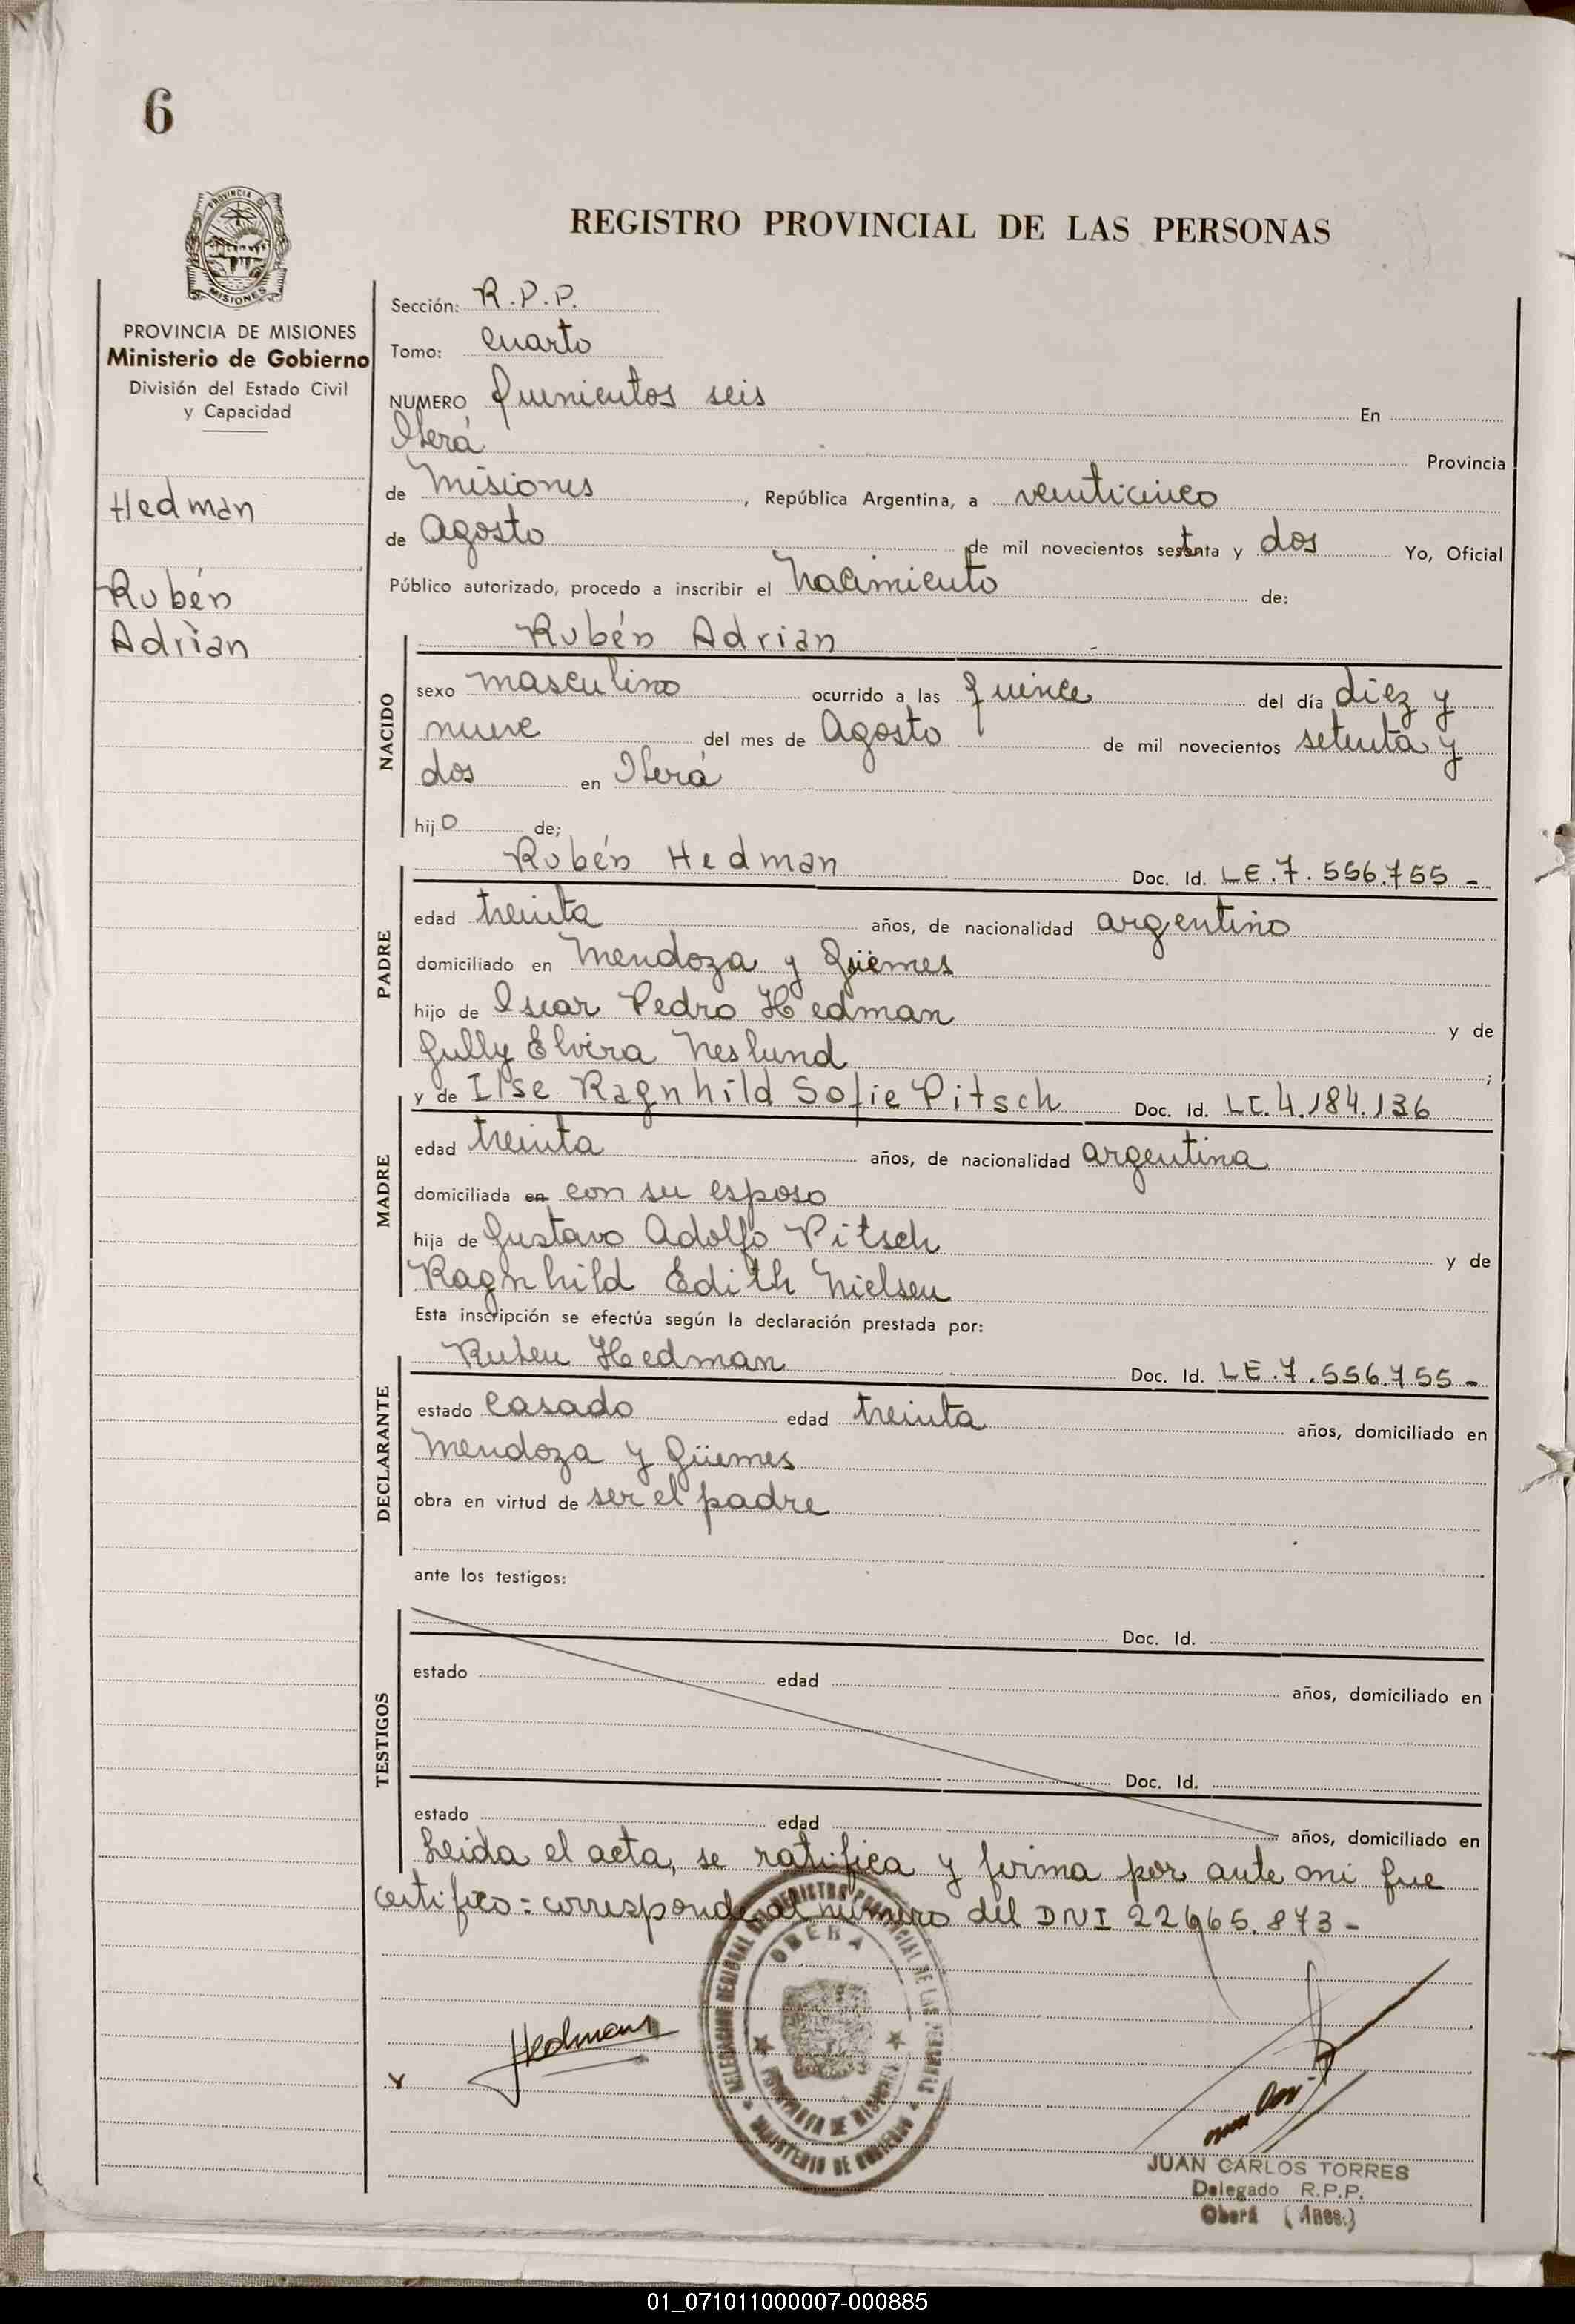 6
PROVINCIA DE MISIONES
REGISTRO PROVINCIAL DE LAS PERSONAS
PROVINCIA DE MISIONES
Ministerio de Gobierno
División del Estado Civil
y Capacidad
Hedman
Rubén
Adrian
Sección: R.P.P.
Tomo: Cuarto
NUMERO Quinientos seis En
Oberá Provincia
de Misiones, República Argentina, a veinticinco
de Agosto de mil novecientos setenta y dos Yo, Oficial
Público autorizado, procedo a inscribir el Nacimiento de:
Rubén Adrian
NACIDO
sexo masculino ocurrido a las quince del día diez y
nueve del mes de Agosto de mil novecientos setenta y
dos en Oberá
hijo de;
Rubén Hedman Doc. Id. LE.7.556.755-
PADRE
edad treinta años, de nacionalidad argentino
domiciliado en Mendoza y Güemes
hijo de Oscar Pedro Hedman y de
Gully Elvira Neslund;
y de Ilse Ragnhild Sofie Pitsch Doc. Id. LC.4.184.136
MADRE
edad treinta años, de nacionalidad argentina
domiciliada en con su esposo
hija de Gustavo Adolfo Pitsch y de
Ragnhild Edith Nielsen
Esta inscripción se efectúa según la declaración prestada por:
Ruben Hedman Doc. Id. LE.7.556.755-
DECLARANTE
estado Casado edad treinta años, domiciliado en
Mendoza y Güemes
obra en virtud de ser el padre
ante los testigos:
Doc. Id.
TESTIGOS
estado edad años, domiciliado en
Doc. Id.
estado edad años, domiciliado en
Leida el acta, se ratifica y firma por ante mi que
certifico = corresponde al número del DNI 22665.873-
Hedman
DELEGACION REGIONAL DEL REGISTRO PROVINCIAL DE LAS PERSONAS
OBERA
PROVINCIA DE MISIONES
MINISTERIO DE GOBIERNO
JUAN CARLOS TORRES
Delegado R.P.P.
Oberá (Mnes.)
01_071011000007-000885